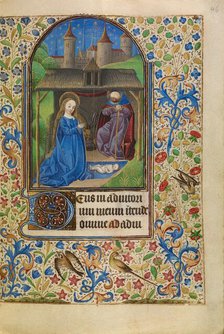 96
Eus in adiutori
um meum intende
Domine ad adiu